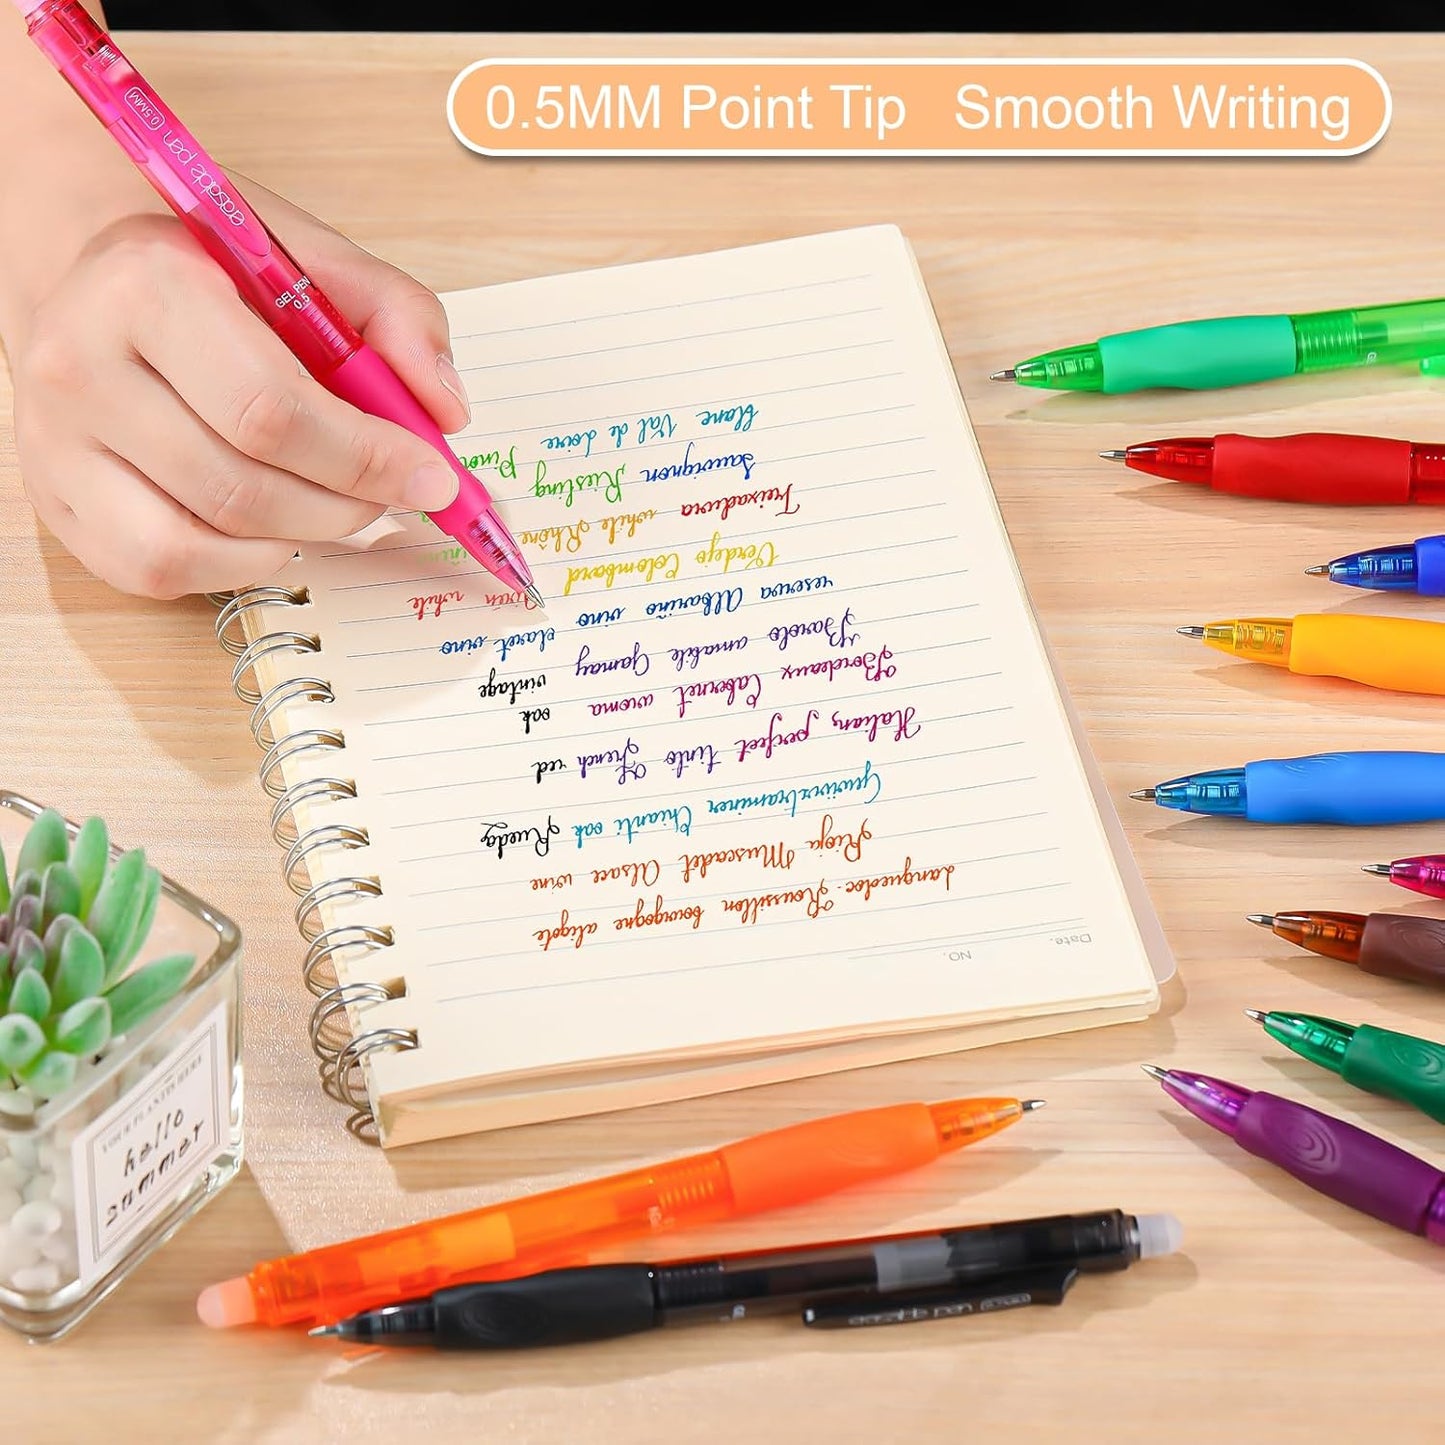 0.5MM Point Tip Smooth Writing
erasable pen 0.5MM
GEL PEN
0.5
Date.
NO.
Languedoc-Roussillon bourgogne aligote
Rioja Muscadet Alsace wine
Gewürztraminer Chianti oak Rueda
Italian, perfect tinto French red
Bordeaux Cabernet aroma oak
Barolo amabile Gamay vintage
reserva Albariño vino claret vino
Verdejo Colombard white
Treixadura white Rhône
Sauvignon Riesling
blanc Val de Loire Pinot
hello
summer